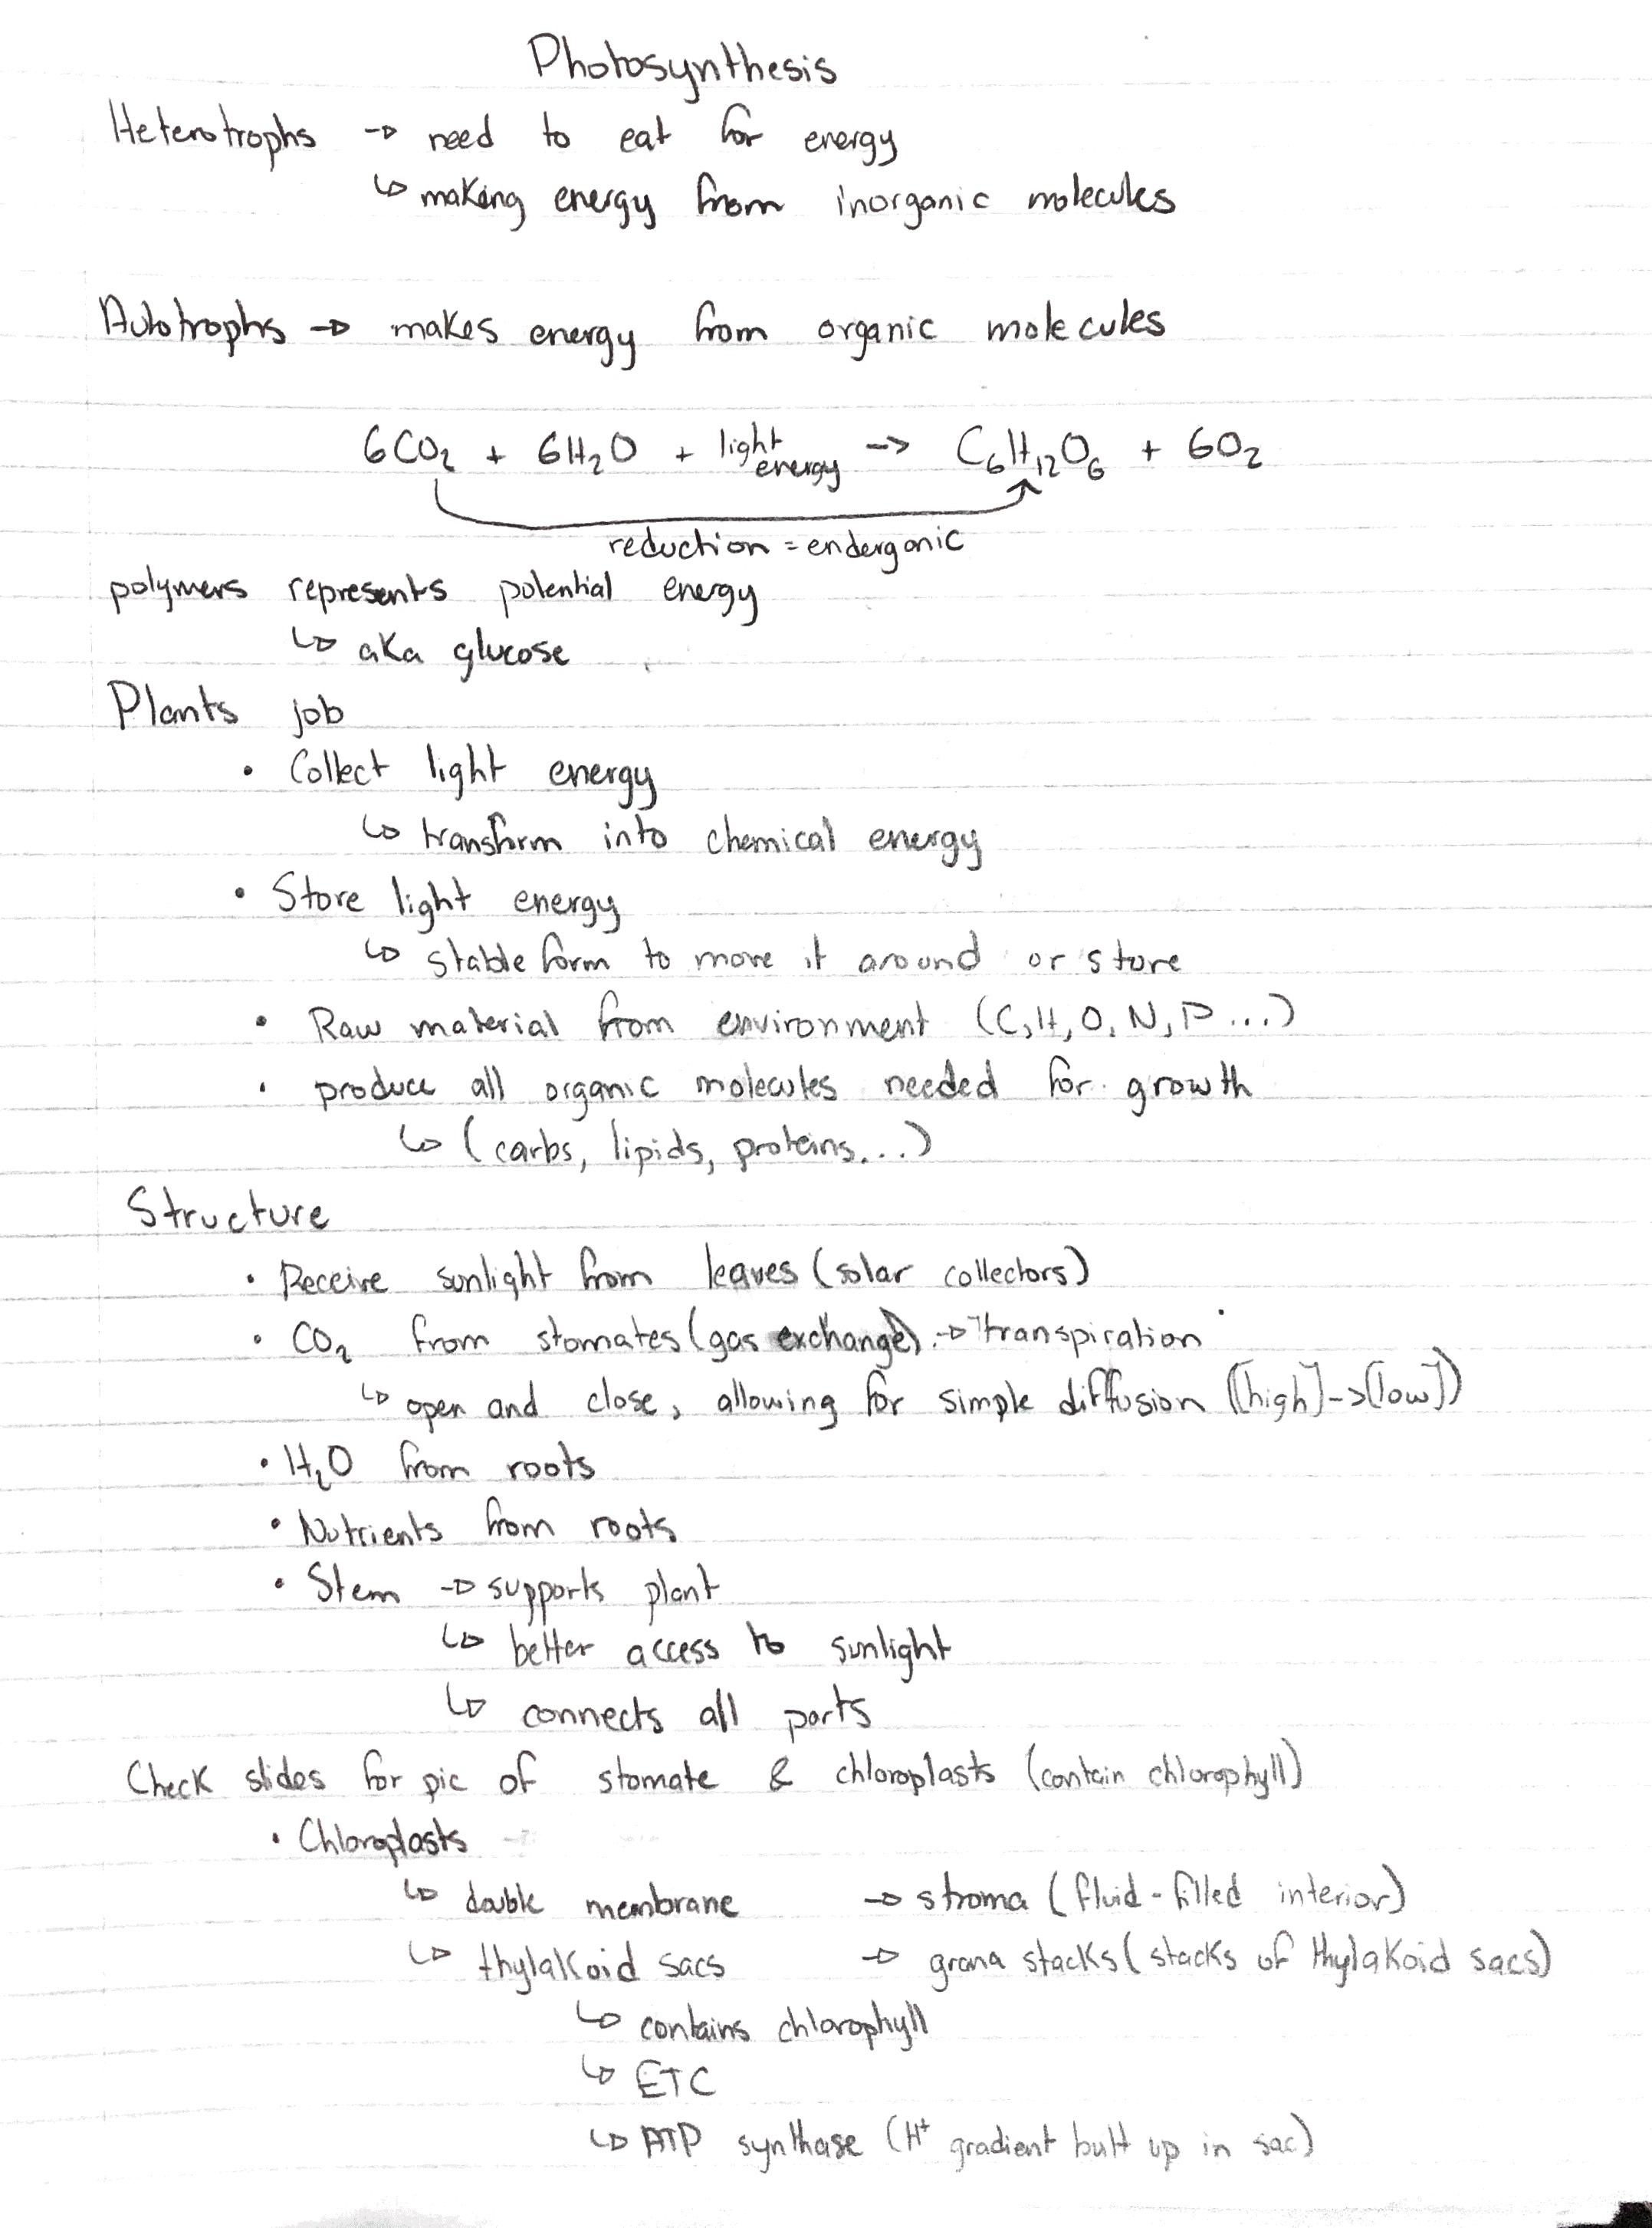 Photosynthesis
Heterotrophs → need to eat for energy
↳ making energy from inorganic molecules
Autotrophs → makes energy from organic molecules
6CO₂ + 6H₂O + light energy → C₆H₁₂O₆ + 6O₂
reduction = enderganic
polymers represents potential energy
↳ aka glucose
Plants job
• Collect light energy
↳ transform into chemical energy
• Store light energy
↳ stable form to move it around or store
• Raw material from environment (C, H, O, N, P ...)
• produce all organic molecules needed for growth
↳ (carbs, lipids, proteins...)
Structure
• Receive sunlight from leaves (solar collectors)
• CO₂ from stomates (gas exchange) → transpiration
↳ open and close, allowing for simple diffusion ([high] -> [low])
• H₂O from roots
• Nutrients from roots
• Stem → supports plant
↳ better access to sunlight
↳ connects all parts
Check slides for pic of stomate & chloroplasts (contain chlorophyll)
• Chloroplasts
↳ double membrane → stroma (fluid-filled interior)
↳ thylakoid sacs → grana stacks (stacks of thylakoid sacs)
↳ contains chlorophyll
↳ ETC
↳ ATP synthase (H⁺ gradient built up in sac)